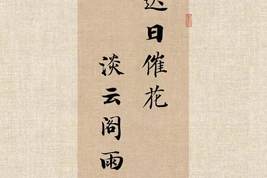 迟日催花
淡云阁雨